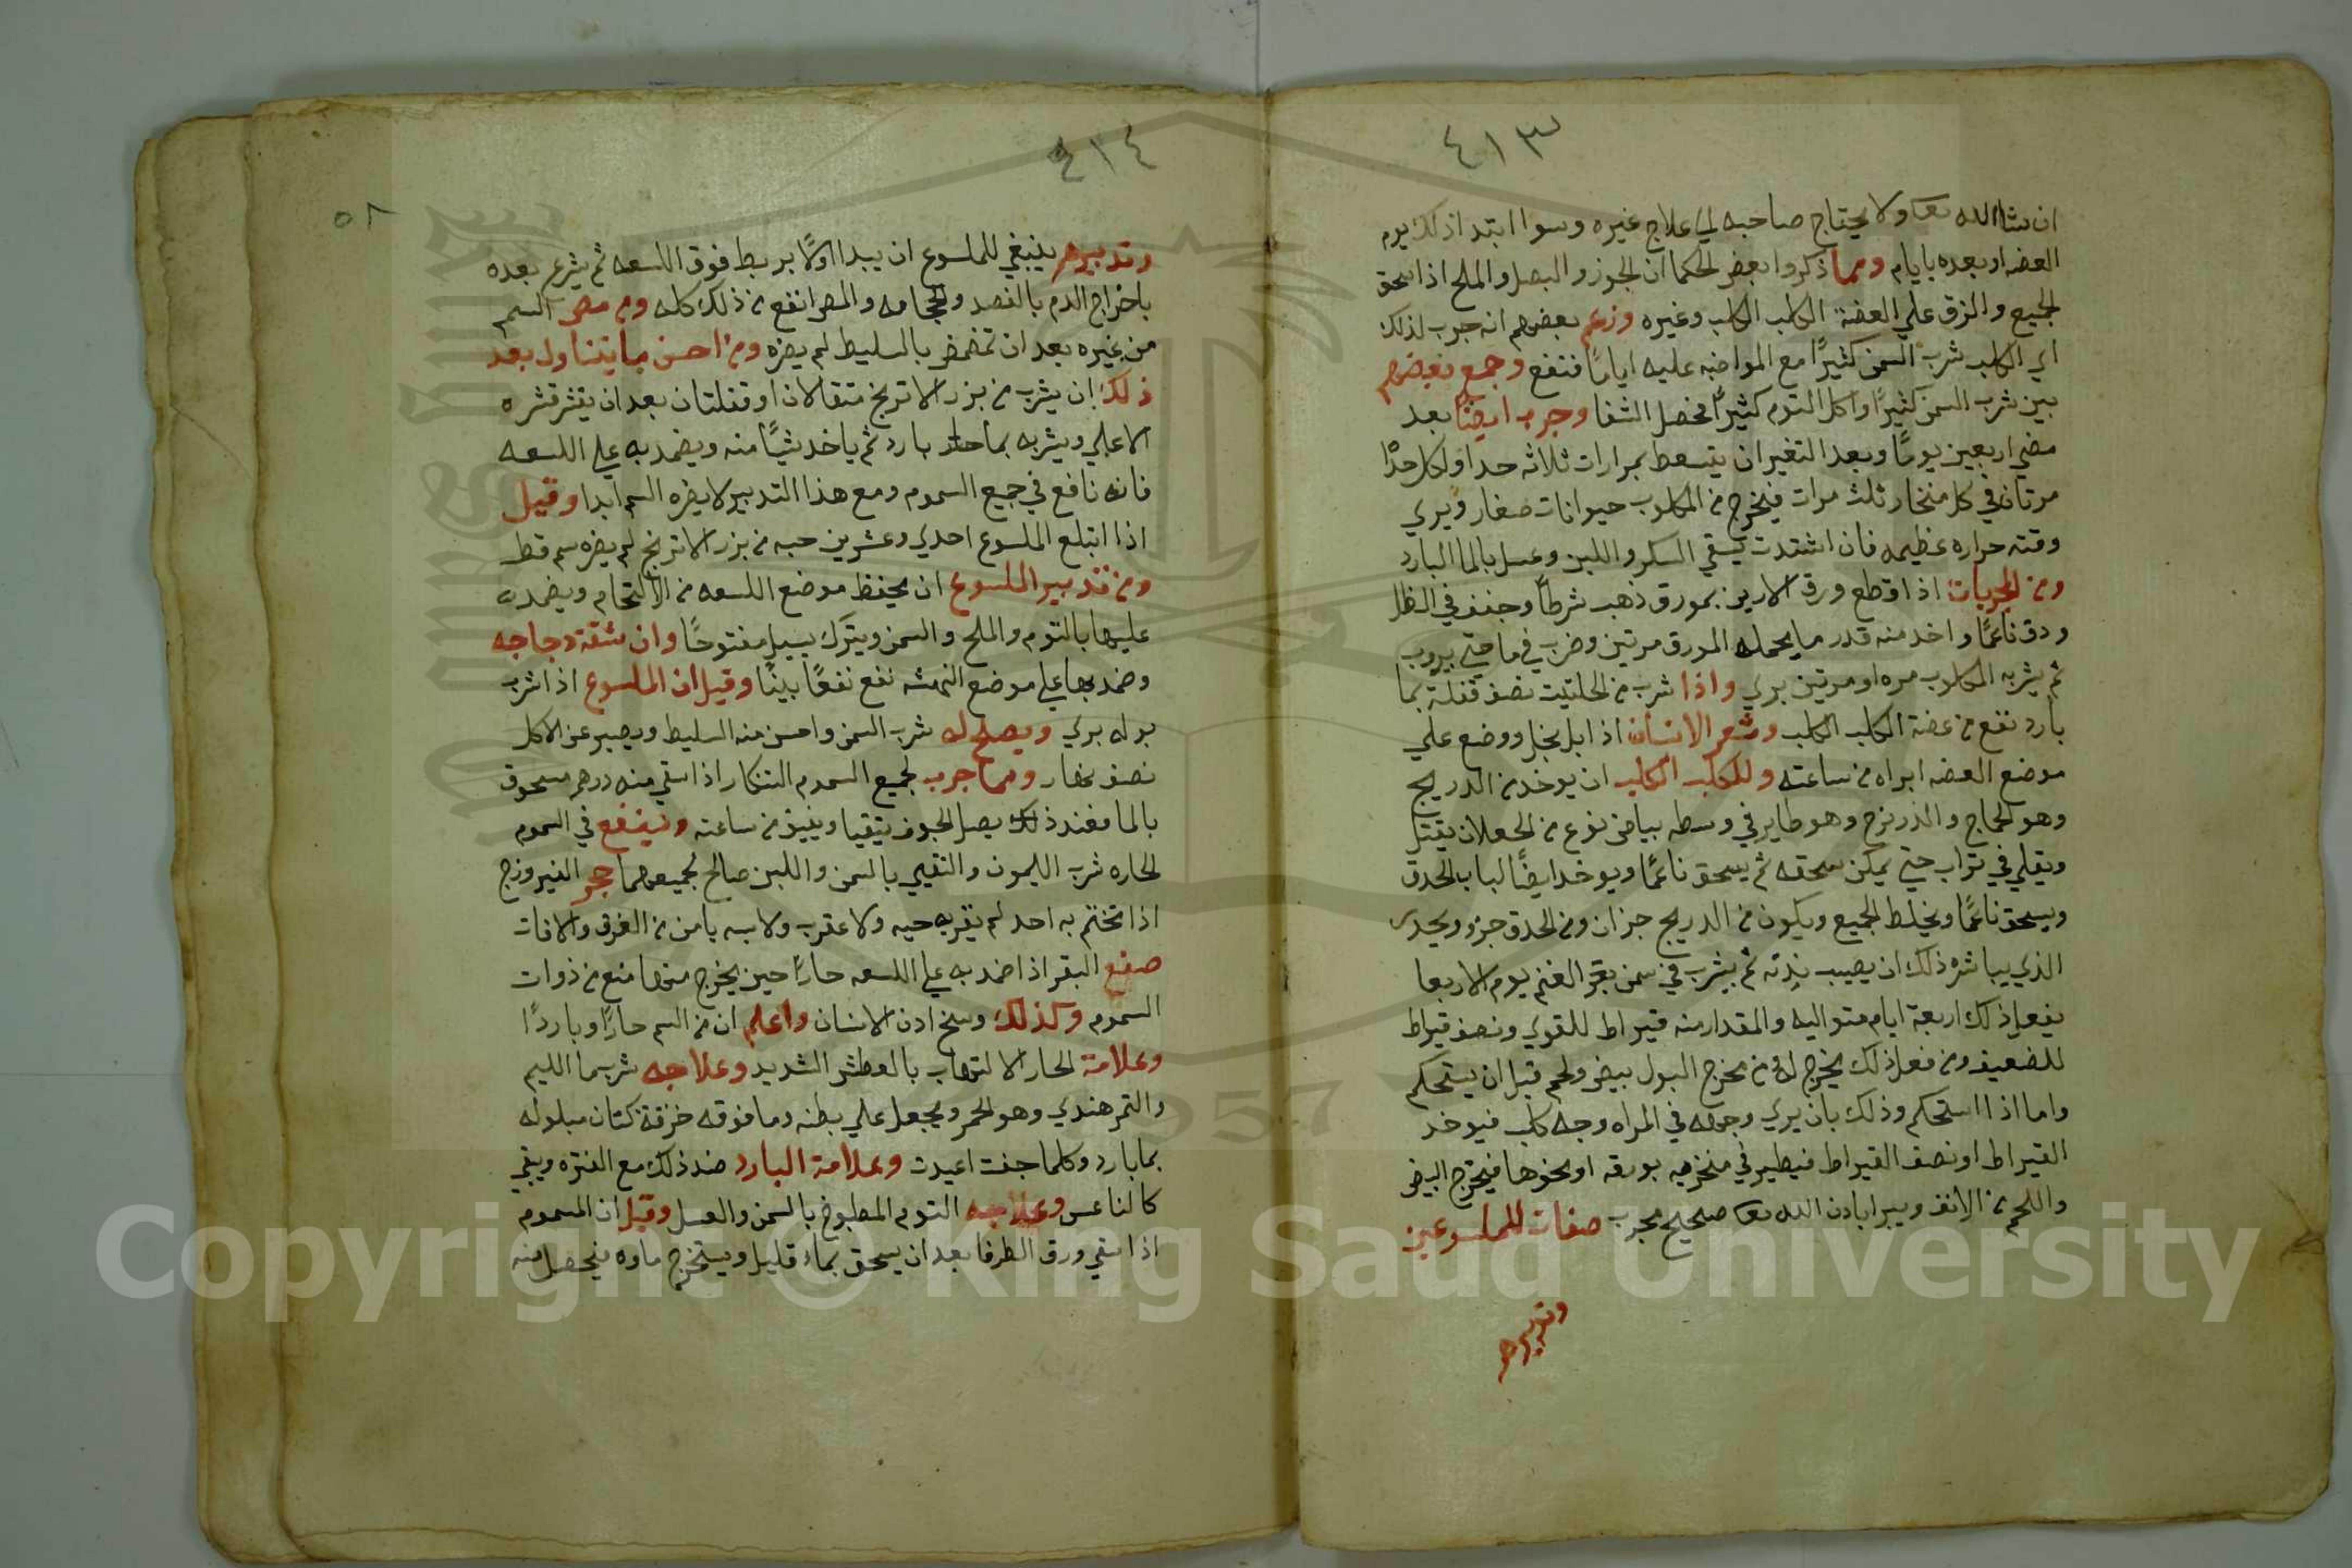 ٤١٣
ان شاالله تعا ولا يحتاج صاحبه الي علاج غيره وسوا ابتدا ذلك يوم
العضه او بعده بايام ومما ذكروا بعض الحكما ان الجوز والبصل والملح اذا سحق
الجميع والزق علي العضة الكلب الكلب وغيره وزعم بعضهم انه جرب لذلك
اي الكلب شرب السمن كثيرًا مع المواضبه عليه ايامًا فنفع وجمع بعضهم
بين شرب السمن كثيرًا واكل الثوم كثيرًا فحصل الشفا وجرب ايضًا بعد
مضي اربعين يومًا وبعد التغير ان يتسعط بمرارات ثلاثه حدا ولكل حدا
مرتان في كل منخار ثلث مرات فيخرج من المكلوب حيوانات صغار ويري
وقته حراره عظيمه فان اشتدت يسقي السكر واللبن وغسل بالما البارد
ومن المجربات اذا قطع ورق الارين بمورق ذهب شرطًا وجفف في الظل
ودق ناعمًا واخذ منه قدر ما يحمله المورق مرتين وضرب في ما حتي يروب
ثم يشربه المكلوب مره او مرتين بري واذا شرب من الحلتيت نصف قفلة بما
بارد نفع من عضة الكلب الكلب وشعر الانسان اذا بل بخل ووضع علي
موضع العضه ابراه من ساعته وللكلب الكلب ان يوخذ من الدريج
وهو الحماج والذرنزح وهو طاير في وسطه بياض نوع من الجعلان يقتل
ويقلي في تراب حتي يمكن سحقه ثم يسحق ناعمًا ويوخذ ايضًا لباب الحدق
ويسحق ناعمًا ويخلط الجميع ويكون من الدريج جزان ومن الحدق جزو ويحدى
الذي يباشره ذلك ان يصيب بدنه ثم يشرب في سمن بقر الغنم يوم الاربعا
يفعل ذلك اربعة ايام متواليه والمقدار منه قيراط للقوي ونصف قيراط
للضعيف ومن فعل ذلك يخرج له من مخرج البول بيض ولحم قبل ان يستحكم
واما اذا استحكم وذلك بان يري وجهه في المراه وجه كلب فيوخذ
القيراط او نصف القيراط فيطير في منخريه بورقه او نحوها فيخرج البيض
واللحم من الانف ويبرا باذن الله تعا صحيح مجرب صفات للملسوعين
وتدبيرهم
٤١٤
٥٨
وتدبيرهم ينبغي للملسوع ان يبدا اولًا بربط فوق اللسعه ثم يشرع بعده
باخراج الدم بالفصد والحجامه والمص انفع من ذلك كله ومن مص السم
من غيره بعد ان تمضمض بالسليط لم يضره ومن احسن ما يتناول بعد
ذلك ان يشرب من بزر الاترنج مثقالان او قفلتان بعد ان يقشر قشره
الاعلي ويشربه بما حار بارد ثم ياخذ شيًا منه ويضمد به علي اللسعه
فانه نافع في جميع السموم ومع هذا التدبير لا يضره السم ابدا وقيل
اذا ابتلع الملسوع احدي وعشرين حبه من بزر الاترنج لم يضره سم قط
ومن تدبير الملسوع ان يحفظ موضع اللسعه من الالتحام ويضمد
عليها بالثوم والملح والسمن ويترك يسيل مفتوحًا وان شقة دجاجه
وضمد بها علي موضع النهشه نفع نفعًا بينًا وقيل ان الملسوع اذا شرب
بوله بري ويصلح له شرب السمن واحسن منه السليط ويصبر عن الاكل
نصف نهار ومما جرب لجميع السموم التنكار اذا سقي منه درهم مسحوق
بالما فعند ذلك يصل الجوف يتقيا ويفيق من ساعته وينفع في السموم
الحاره شرب الليمون والتقيي بالسمن واللبن صالح لجميعهما حجر الفيروزج
اذا تختم به احد لم يقربه حيه ولا عقرب ولابسه يامن من الغرق والافات
صفع البقر اذا ضمد به علي اللسعه حارًا حين يخرج منها منع من ذوات
السموم وكذلك وسخ اذن الانسان واعلم ان من السم حارًا وباردًا
وعلامة الحار الالتهاب بالعطش الشديد وعلاجه شرب ما الليم
والتمر هندي وهو الحمر ويجعل علي بطنه وما فوقه خرقة كتان مبلوله
بما بارد وكلما جفت اعيدت وعلامة البارد ضد ذلك مع الفتره ويبقي
كالناعس وعلاجه الثوم المطبوخ بالسمن والعسل وقيل ان المسموم
اذا سقي ورق الطرفا بعد ان يسحق بماء قليل ويستخرج ماوه فيحصل منه
Copyright © King Saud University
1957